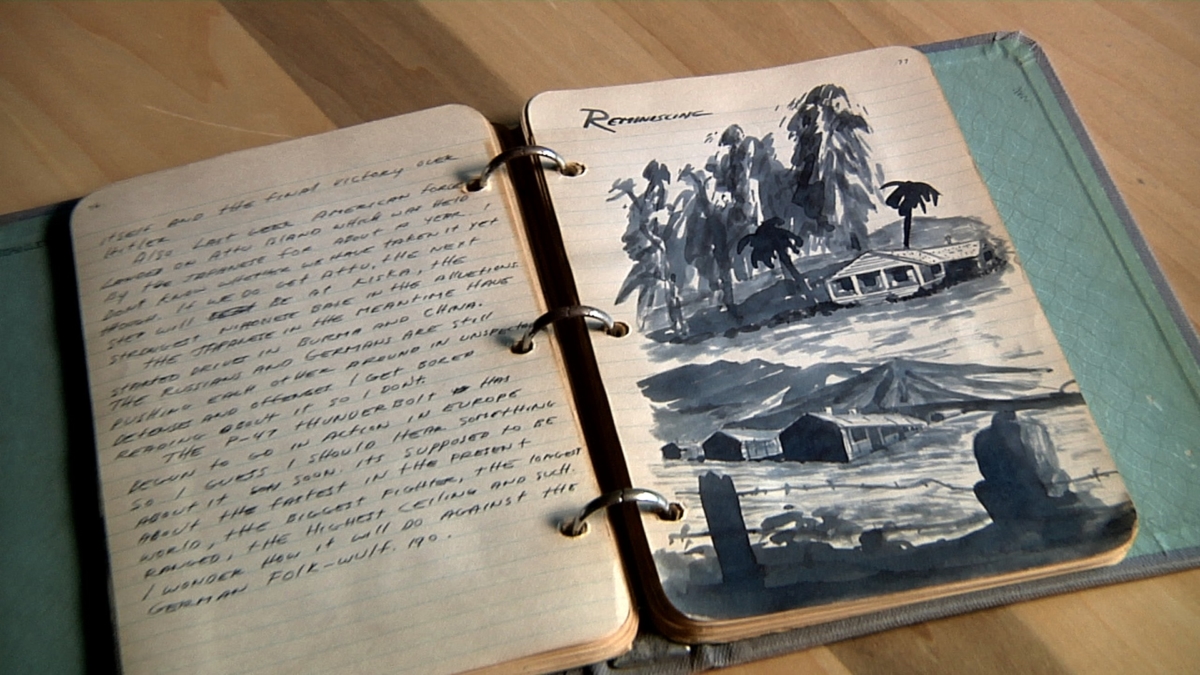 ITSELF AND THE FINAL VICTORY OVER
HITLER.
ALSO LAST WEEK AMERICAN FORCES
LANDED ON ATTU ISLAND WHICH WAS HELD
BY THE JAPANESE FOR ABOUT A YEAR. I
DONT KNOW WHETHER WE HAVE TAKEN IT YET
HOWEV. IF WE DO GET ATTU, THE NEXT
STEP WILL BE AT KISKA, THE
STRONGEST NIPPONESE BASE IN THE ALUETIONS.
THE JAPANESE IN THE MEANTIME HAVE
STARTED DRIVES IN BURMA AND CHINA.
THE RUSSIANS AND GERMANS ARE STILL
PUSHING EACH OTHER AROUND IN
DEFENSE AND OFFENSES I GET BORED
READING ABOUT IT SO I DONT.
THE P-47 THUNDERBOLT HAS
BEGUN TO GO IN ACTION IN EUROPE
SO I GUESS I SHOULD HEAR SOMETHING
ABOUT IT SOON. ITS SUPPOSED TO BE
ABOUT THE FASTEST IN THE PRESENT
WORLD, THE BIGGEST FIGHTER, THE LONGEST
RANGED, THE HIGHEST CEILING AND SUCH.
I WONDER HOW IT WILL DO AGAINST THE
GERMAN FOLK-WULF. 190.
REMINISCING
77